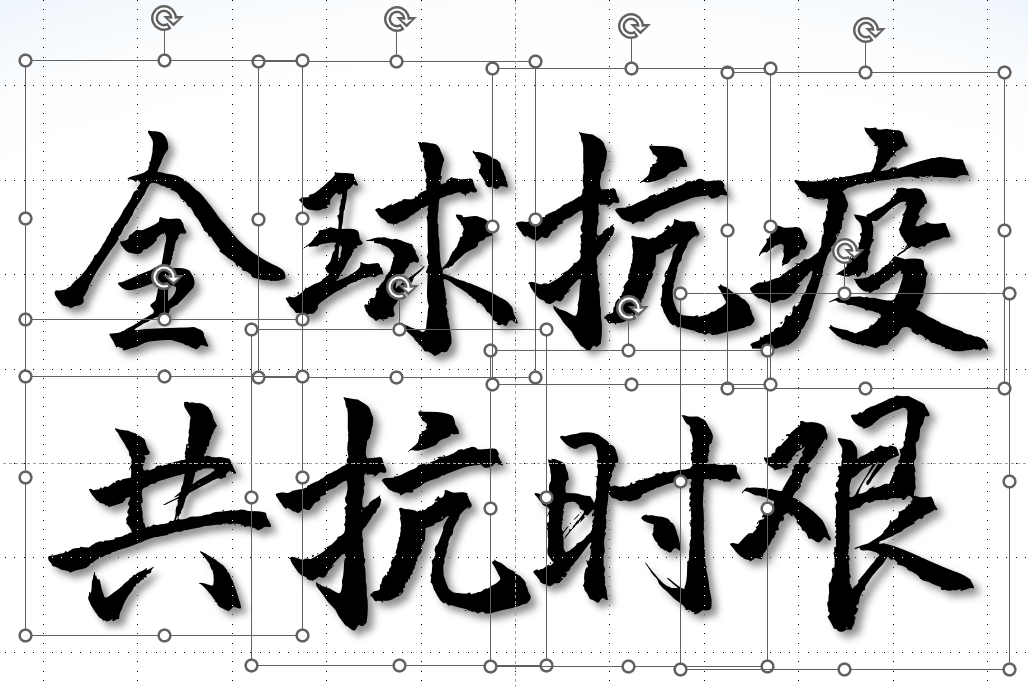 全球抗疫
共抗时艰